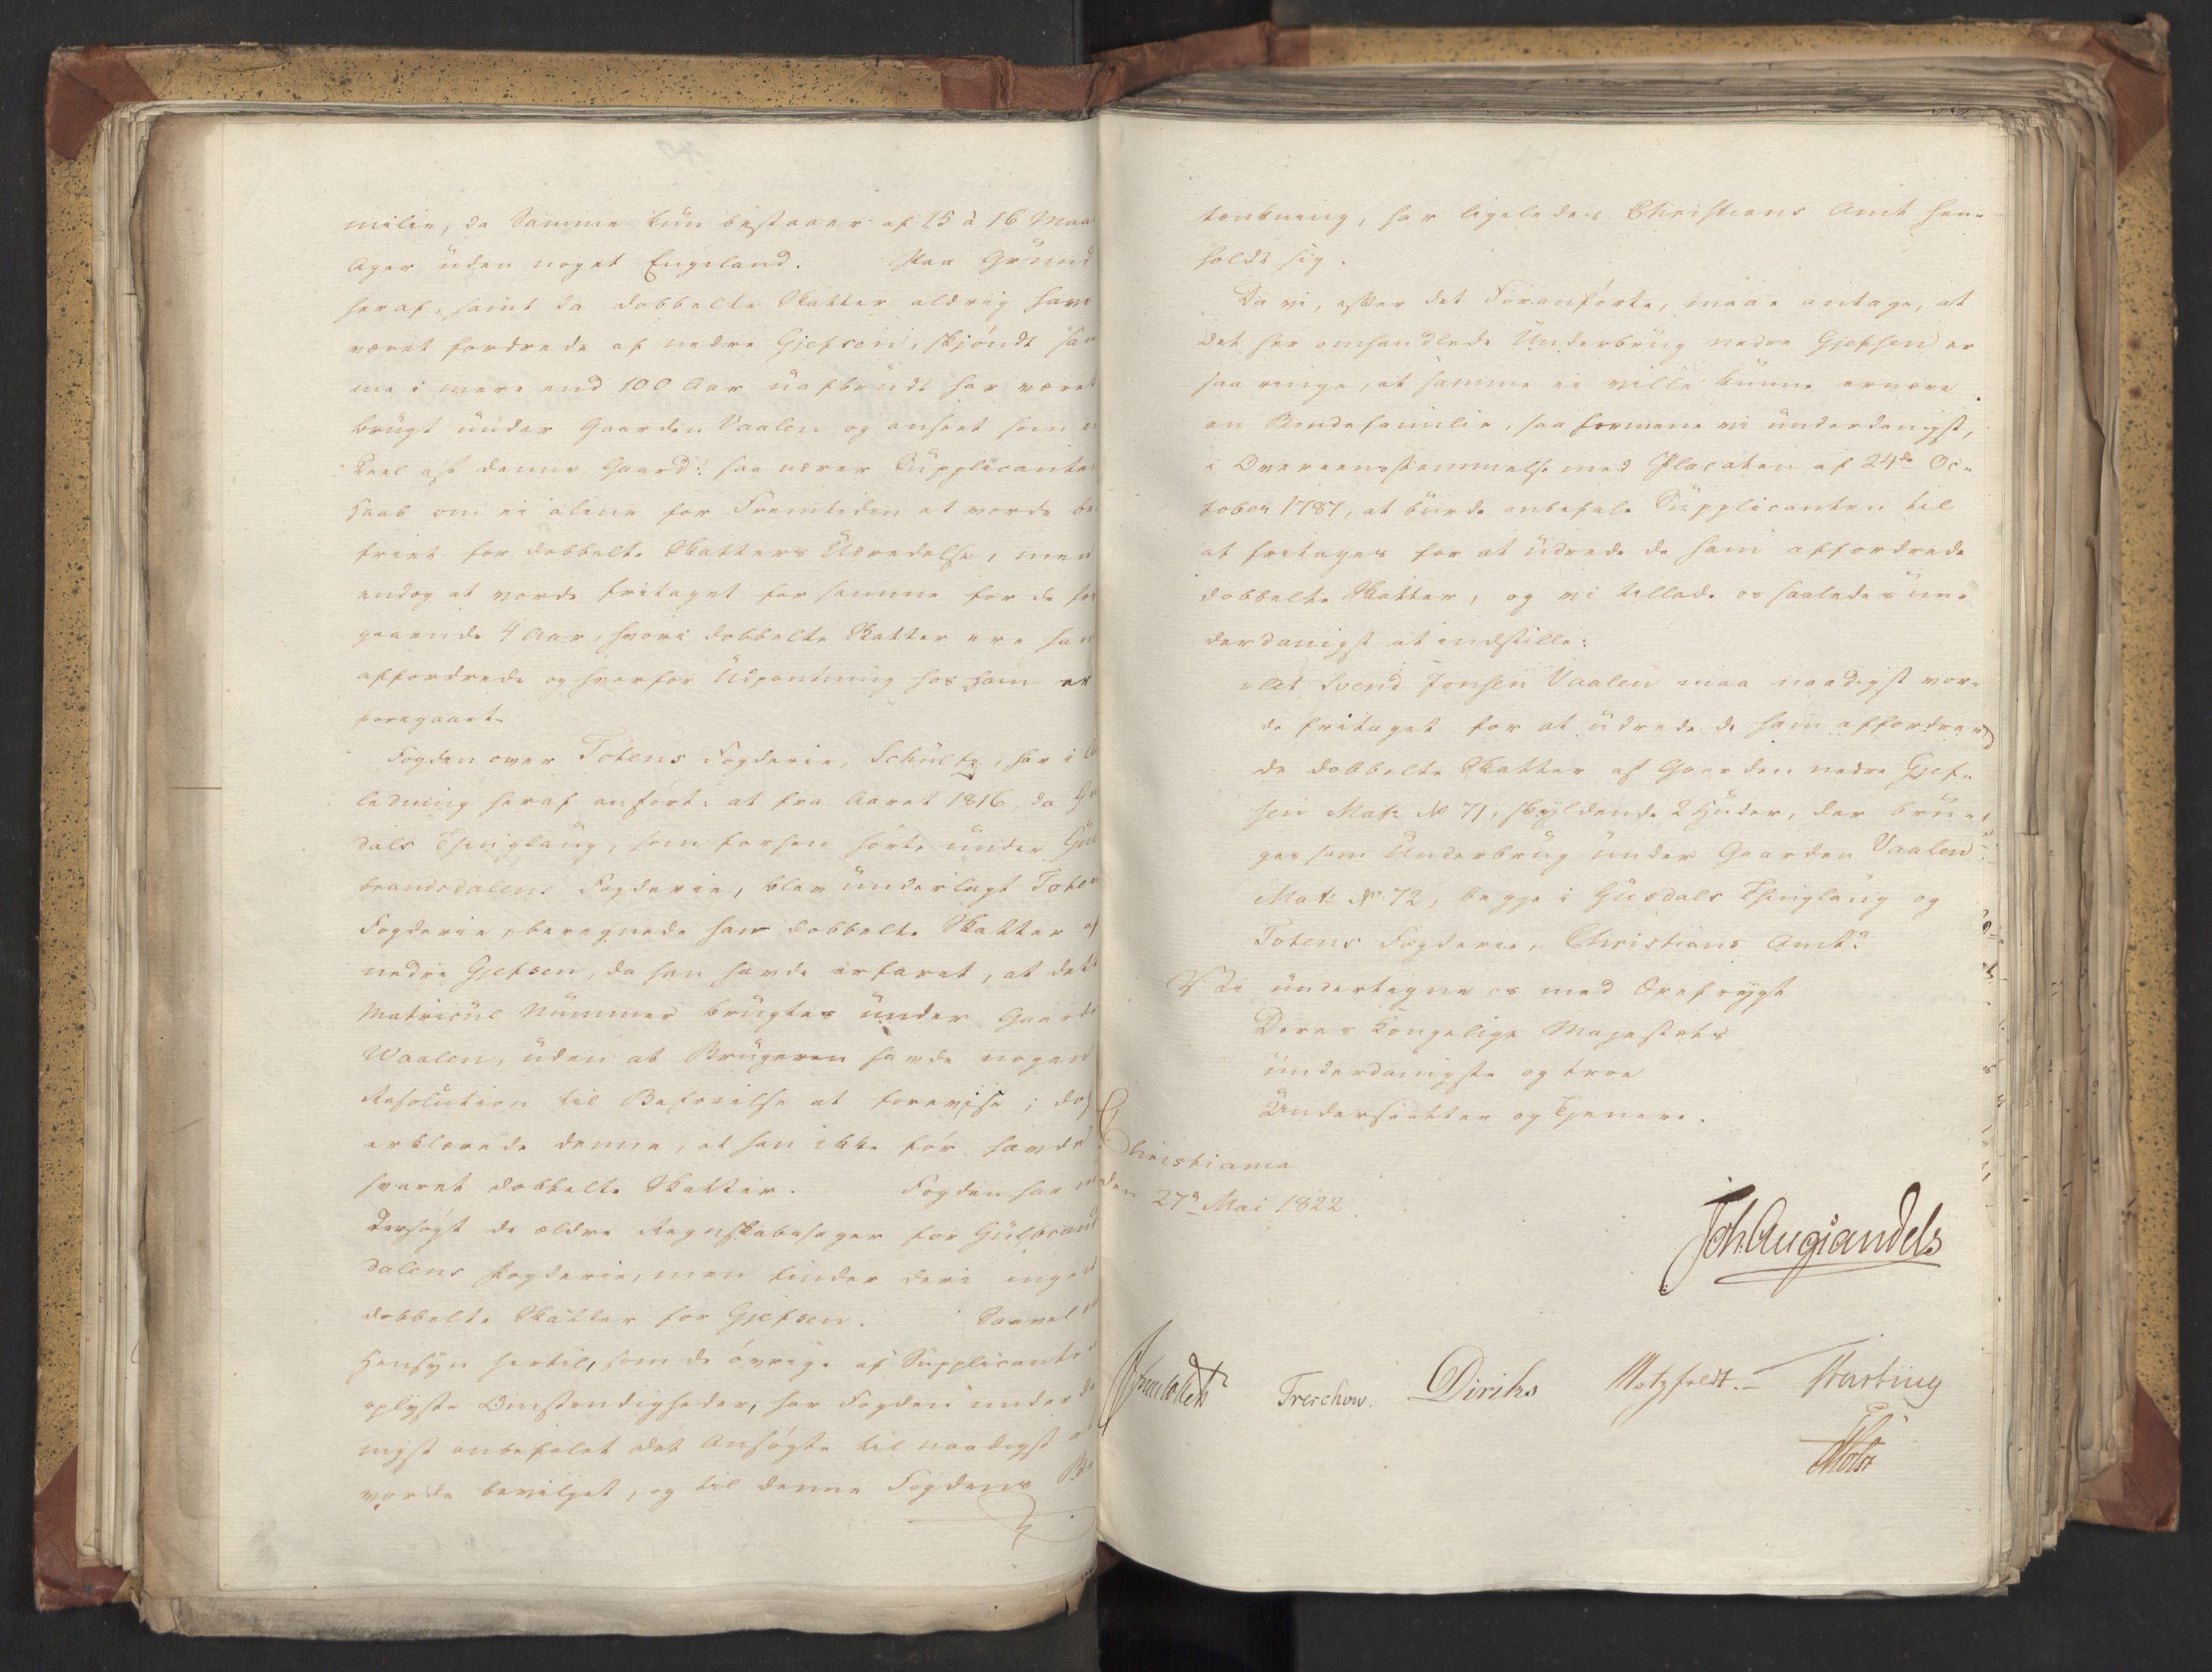 milie, da Samme kun bestaaer af 15 à 16 Maal
Ager uden noget Engeland. Paa Grund
heraf, samt da dobbelte Skatter aldrig have
været fordrede af nedre Gjefsen, skjøndt sam
me i mere end 100 Aar uafbrudt har været
brugt under Gaarden Vaalen og anseet som en
Deel af denne Gaard: saa nærer Supplicanten
Haab om ei alene for Fremtiden at vorde be
friet for dobbelte Skatters Udredelse, men
endog at vorde fritaget for samme for de for
gaaende 4 Aar, hvori dobbelte Skatter ere ham
affordrede og hvorfor Udpantning hos ham er
foregaaet.
Fogden over Totens Fogderie, Schultz, har i An
ledning heraf anført: at fra Aaret 1816, da Gus
dals Thinglaug, som forhen hørte under Gul
brandsdalens Fogderie, blev underlagt Totens
Fogderie, beregnede han dobbelte Skatter af
nedre Gjefsen, da han havde erfaret, at dette
Matricul Nummer brugtes under Gaarden
Waalen, uden at Brugeren havde nogen
Resolution til Befrielse at forevise; dog
erklærede denne, at han ikke før havde
svaret dobbelte Skatter. Fogden har
derhøst de ældre Regnskabssager for Gulbrands
dalens Fogderie, men finder deri ingen
dobbelte Skatter for Gjefsen. Saavel i
Hensyn hertil, som de øvrige af Supplicanten
oplyste Omstændigheder, har Fogden underda
nigst anbefalet det Ansøgte til naadigst at
vorde bevilget, og til denne Fogdens Be
tænkning, har ligeledes Christians Amt hen-
holdt sig.
Da vi, efter det Foranførte, maae antage, at
det her omhandlede Underbrug nedre Gjefsen er
saa ringe, at samme ei ville kunne ernære
en Bondefamilie, saa formene vi underdanigst,
i Overeensstemmelse med Placaten af 24de Oc-
tober 1787, at burde anbefale Supplicanten til
at fritages for at udrede de ham affordrede
dobbelte Skatter, og vi tillade os saaledes un-
derdanigst at indstille:
"At Svend Jonsen Vaalen maa naadigst vor-
de fritaget for at udrede de ham affordre-
de dobbelte Skatter af Gaarden nedre Gjef-
sen Mat: № 71, skyldende 2 Huder, der bru-
ges som Underbrug under Gaarden Vaalen
Mat: № 72, begge i Gusdals Thinglaug og
Totens Fogderie, Christians Amt."
Vi undertegne os med Ærefrygt
Deres Kongelige Majestæts
underdanigste og troe
Undersaatter og Tjenere.
Christiania
den 27de Mai 1822.
Joh. Aug: Sandels
Treschow. Diriks Motzfeldt. Fasting
Holst